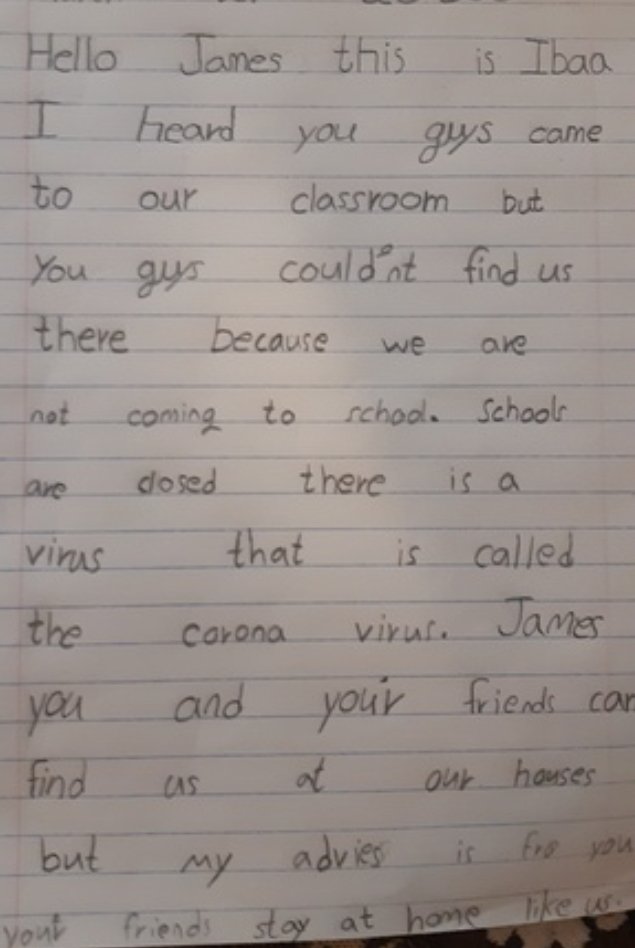 Hello James this is Ibaa
I heard you guys came
to our classroom but
you guys could'nt find us
there because we are
not coming to school. Schools
are closed there is a
virus that is called
the corona virus. James
you and your friends can
find us at our houses
but my advies is fro you
your friends stay at home like us.